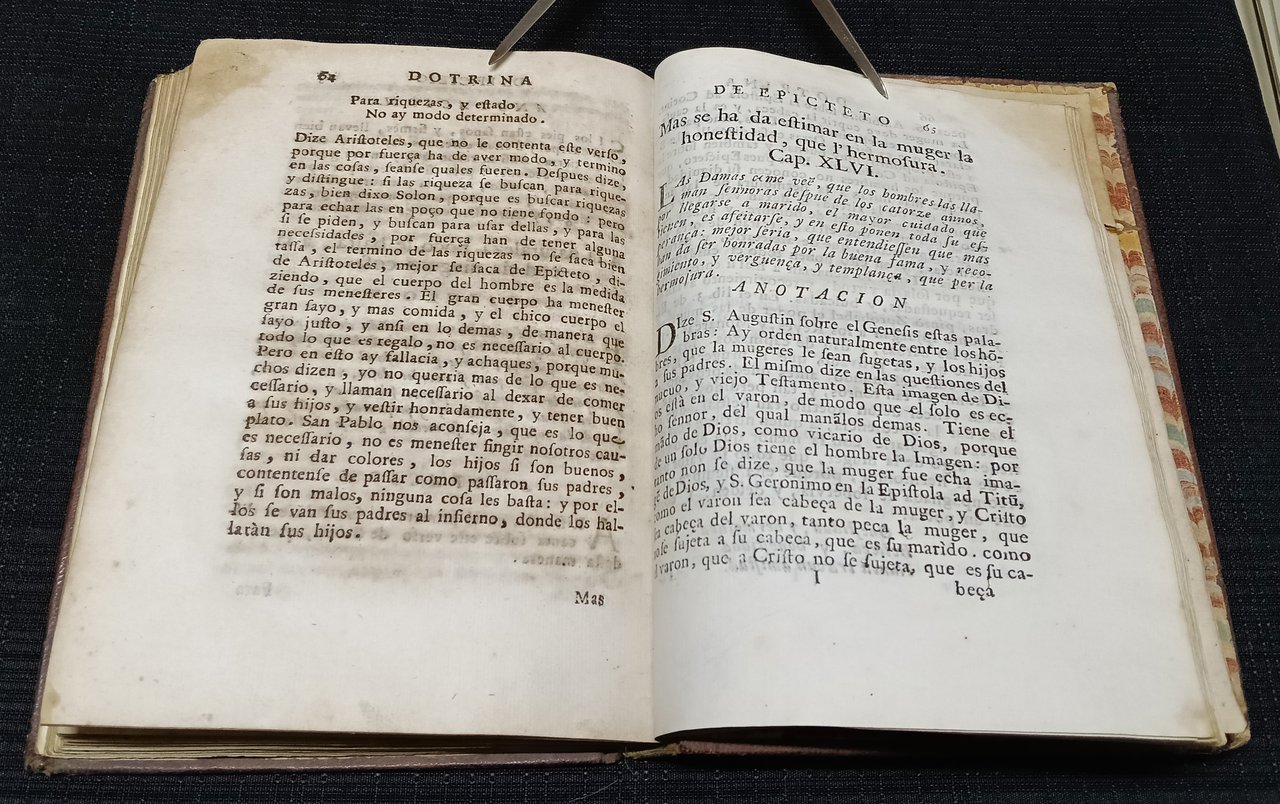 64 DOTRINA
Para riquezas, y eſtado
No ay modo determinado.
Dize Ariſtoteles, que no le contenta eſte verſo,
porque por fuerça ha de aver modo, y termino
en las coſas, ſeanſe quales fueren. Deſpues dize,
y diſtingue: ſi las riqueza ſe buſcan para rique-
zas, bien dixo Solon, porque es buſcar riquezas
para echar las en poço que no tiene fondo: pero
ſi ſe piden, y buſcan para uſar dellas, y para las
neceſsidades, por fuerça han de tener alguna
taſſa, el termino de las riquezas no ſe ſaca bien
de Ariſtoteles, mejor ſe ſaca de Epicteto, di-
ziendo, que el cuerpo del hombre es la medida
de ſus meneſteres. El gran cuerpo ha meneſter
gran ſayo, y mas comida, y el chico cuerpo el
ſayo juſto, y anſi en lo demas, de manera que
todo lo que es regalo, no es neceſſario al cuerpo.
Pero en eſto ay fallacia, y achaques, porque mu-
chos dizen, yo no querria mas de lo que es ne-
ceſſario, y llaman neceſſario al dexar de comer
a ſus hijos, y veſtir honradamente, y tener buen
plato. San Pablo nos aconſeja, que es lo que
es neceſſario, no es meneſter fingir noſotros cau-
ſas, ni dar colores, los hijos ſi ſon buenos,
contentenſe de paſſar como paſſaron ſus padres,
y ſi ſon malos, ninguna coſa les baſta: y por el-
los ſe van ſus padres al inſierno, donde los hal-
laràn ſus hijos.
Mas
DE EPICTETO 65
Mas se ha da eſtimar en la muger la
honeſtidad, que l' hermoſura.
Cap. XLVI.
LAs Damas como veẽ, que los hombres las lla-
man ſennoras deſpue de los catorze annos,
por llegarse a marido, el mayor cuidado que
tienen, es afeitarſe, y en eſto ponen toda ſu eſ-
perança: mejor ſeria, que entendieſſen que mas
han da ſer honradas por la buena fama, y reco-
gimiento, y verguença, y templança, que per la
hermoſura.
ANOTACION
DIze S. Auguſtin ſobre el Geneſis eſtas pala-
bras: Ay orden naturalmente entre los hõ-
bres, que la mugeres le ſean ſugetas, y los hijos
a ſus padres. El miſmo dize en las queſtiones del
nucuo, y viejo Teſtamento. Eſta imagen de Di-
os eſtà en el varon, de modo que el ſolo es ec-
ho ſennor, del qual manãlos demas. Tiene el
mãdo de Dios, como vicario de Dios, porque
de un ſolo Dios tiene el hombre la Imagen: por
tanto non ſe dize, que la muger fue echa ima-
gẽ de Dios, y S. Geronimo en la Epiſtola ad Titũ,
como el varon ſea cabeça de la muger, y Criſto
ſea cabeça del varon, tanto peca la muger, que
no ſe ſujeta a ſu cabeca, que es ſu marido. como
el varon, que a Criſto no ſe ſujeta, que es ſu ca-
I beça